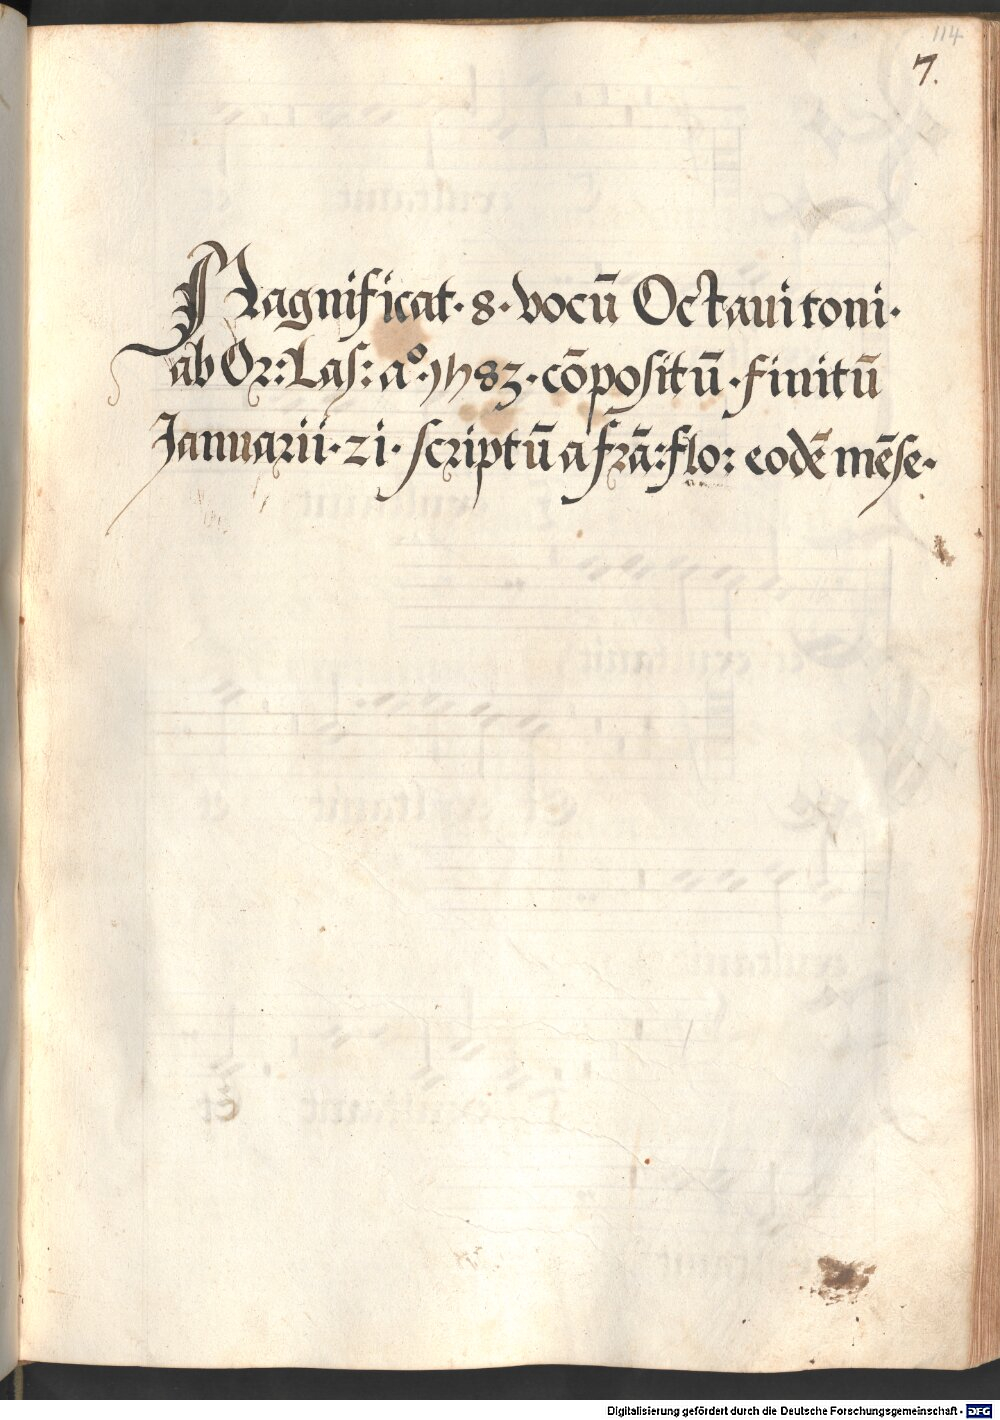 114
7.
Magnificat · 8 · vocū Octaui toni ·
ab Or: Las: aº · 1583 · cōpositū · finitū
Januarii · 21 · scriptū a frā: flo: eodē mēse ·
Digitalisierung gefördert durch die Deutsche Forschungsgemeinschaft - DFG